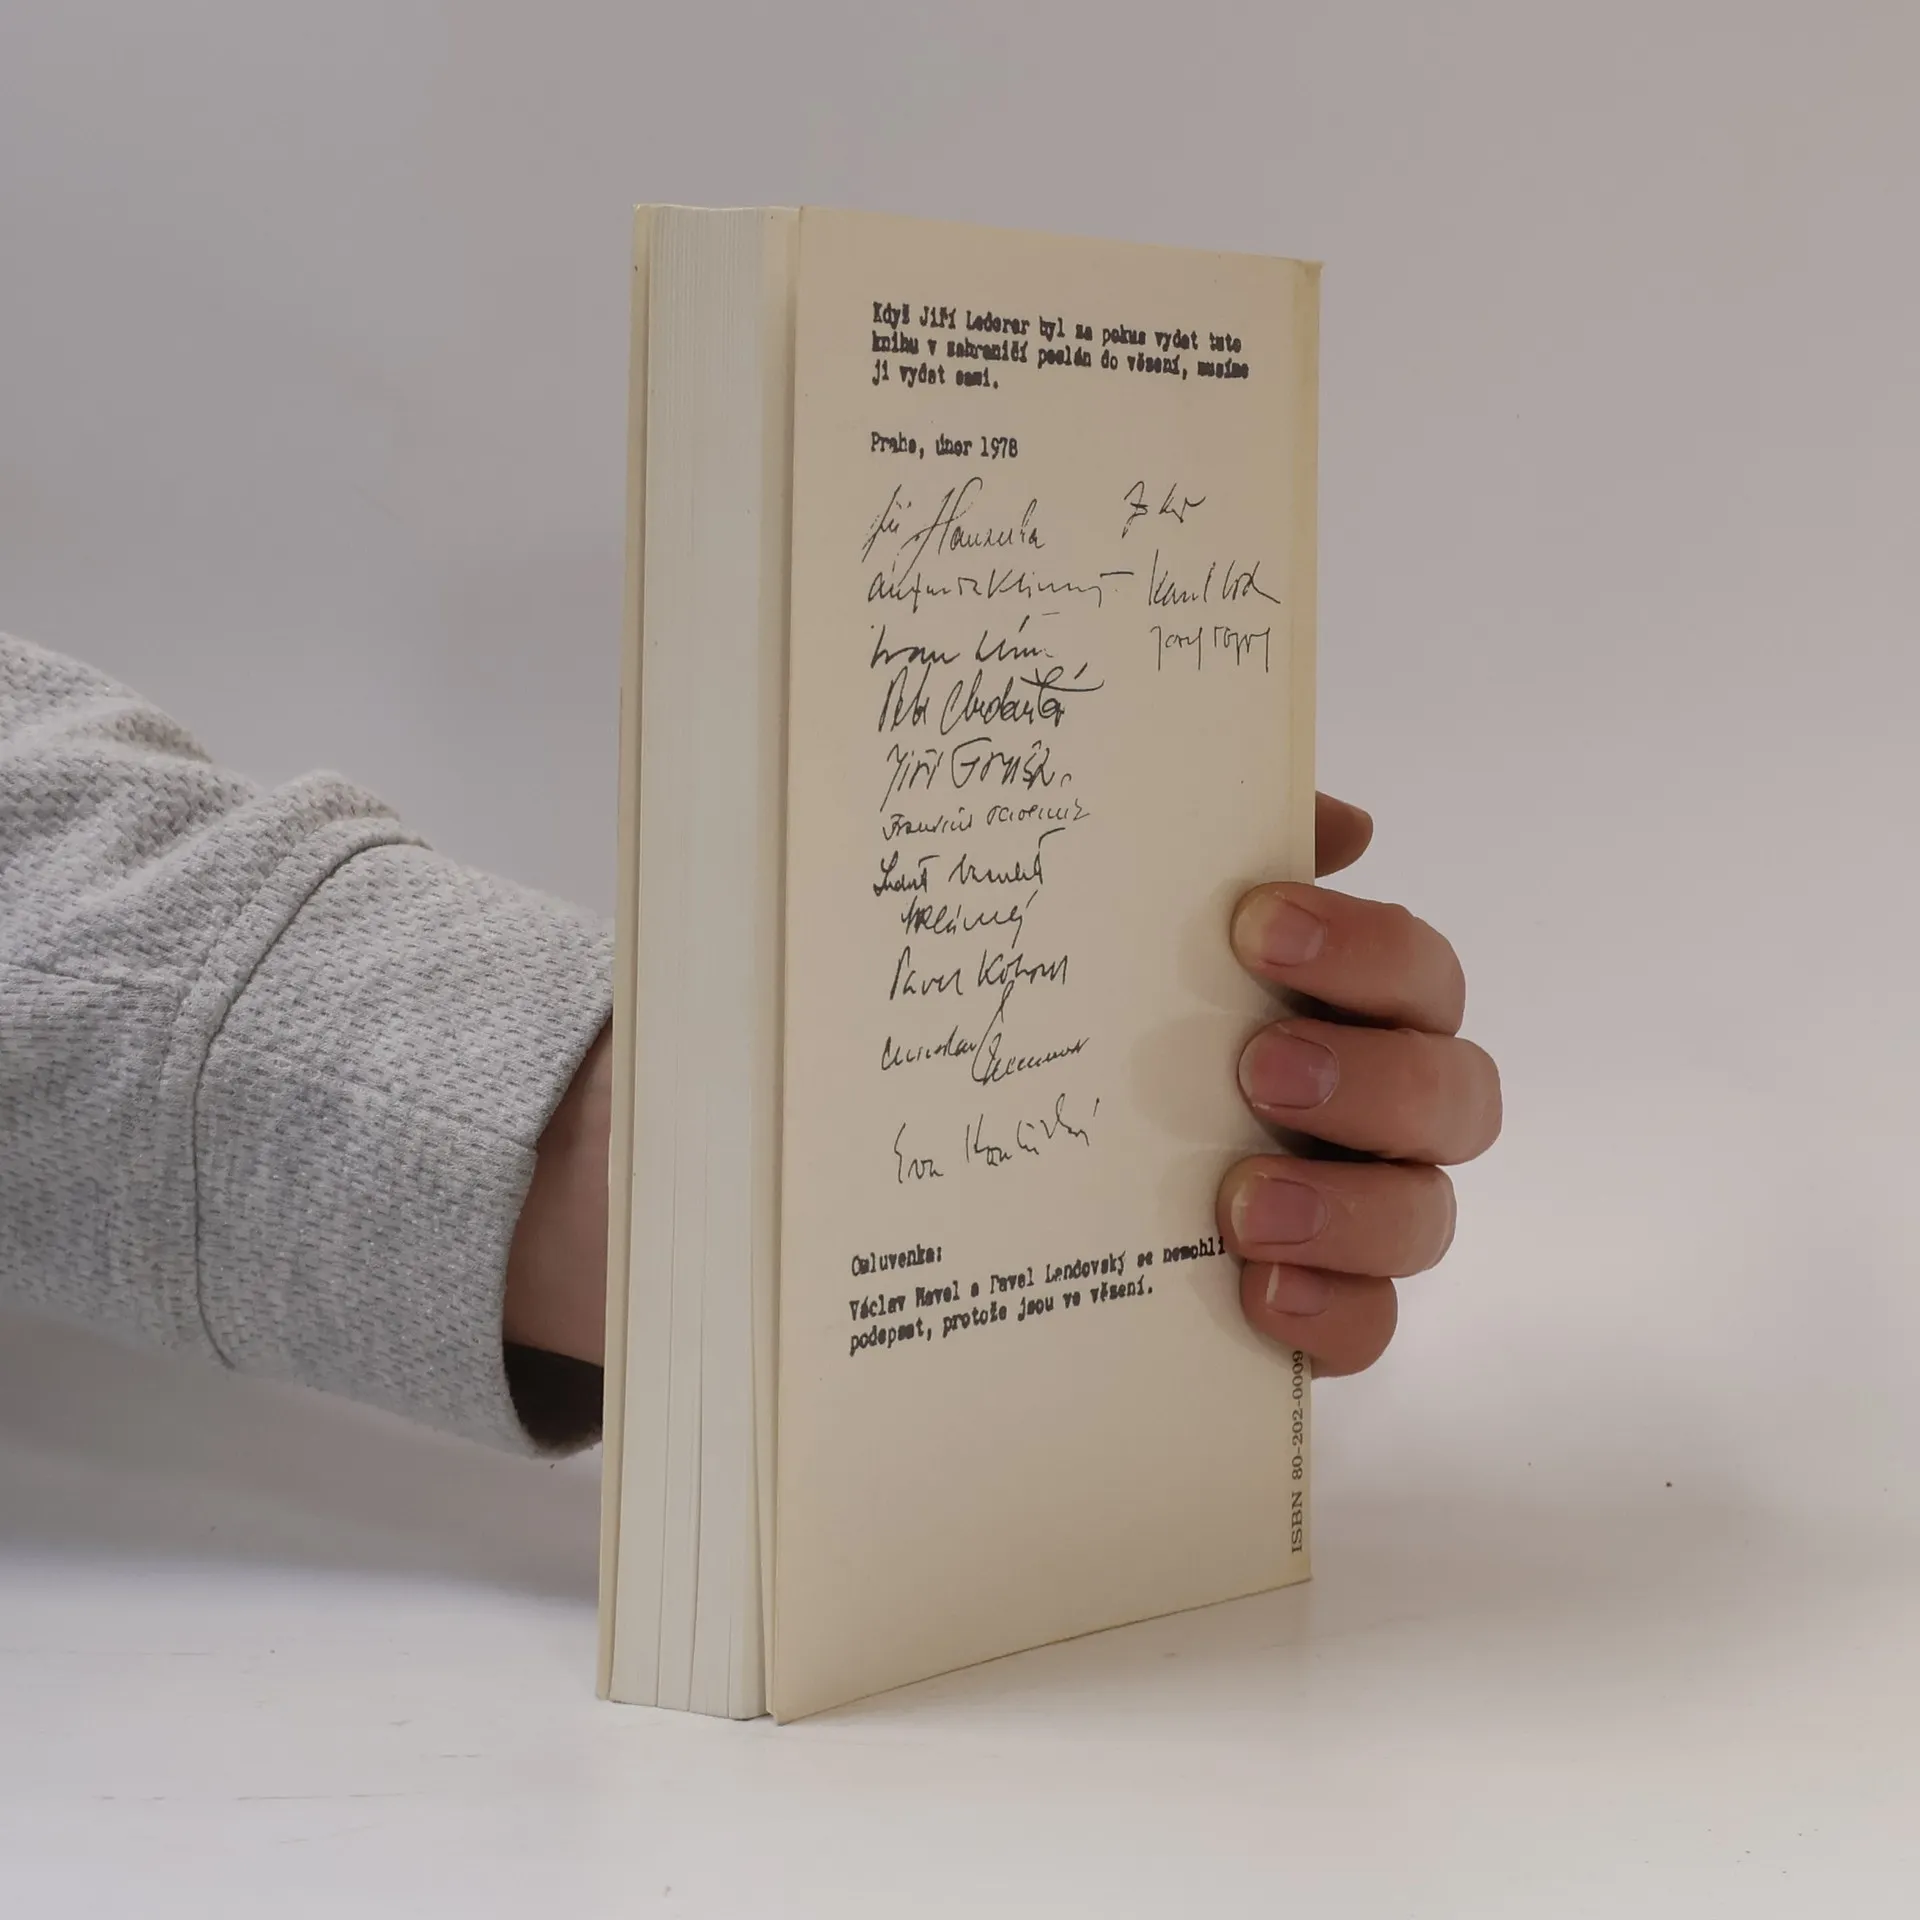 Když Jiří Lederer byl za pokus vydat tuto
knihu v zahraničí poslán do vězení, musíme
ji vydat sami.
Praha, únor 1978
Jiří Hanzelka
Karel
Ivan Klíma
Josef Topol
Petr Chudožilov
Jiří Gruša
František Pavlíček
Ludvík Vaculík
Pavel Kohout
Eva Kantůrková
Omluvenka:
Václav Havel a Pavel Landovský se nemohli
podepsat, protože jsou ve vězení.
ISBN 80-202-0009